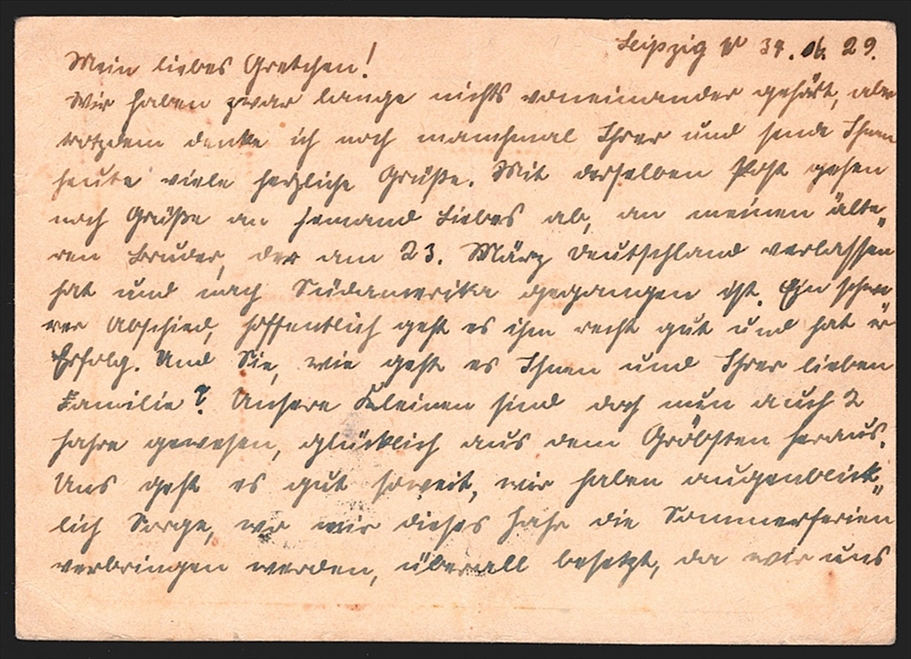 Leipzig 34. 29.
Mein liebes Gretchen!
Wir haben zwar lange nichts voneinander gehört, aber
trotzdem denke ich noch manchmal Ihrer und sende Ihnen
heute viele herzliche Grüße. Mit derselben Post gehen
noch Grüße an jemand Liebes ab, an meinen älte„
ren Bruder, der am 23. März Deutschland verlassen
hat und nach Südamerika gegangen ist. Ein schwe
rer Abschied, hoffentlich geht es ihm recht gut und hat er
Erfolg. Und Sie, wie geht es Ihnen und Ihrer lieben
Familie? Unsere Kleinen sind doch nun auch 2
Jahre gewesen, glücklich aus dem Gröbsten heraus.
Uns geht es gut soweit, wir haben augenblick„
lich Sorge, wo wir dieses Jahr die Sommerferien
verbringen werden, überall besetzt, da wir uns